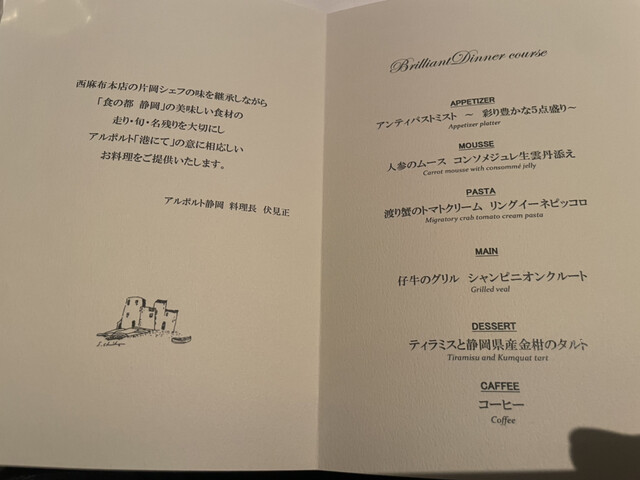 西麻布本店の片岡シェフの味を継承しながら
「食の都 静岡」の美味しい食材の
走り・旬・名残りを大切にし
アルポルト「港にて」の意に相応しい
お料理をご提供いたします。
アルポルト静岡 料理長 伏見正
Brilliant Dinner course
APPETIZER
アンティパストミスト ～ 彩り豊かな5点盛り～
Appetizer platter
MOUSSE
人参のムース コンソメジュレ生雲丹添え
Carrot mousse with consommé jelly
PASTA
渡り蟹のトマトクリーム リングイーネピッコロ
Migratory crab tomato cream pasta
MAIN
仔牛のグリル シャンピニオンクルート
Grilled veal
DESSERT
ティラミスと静岡県産金柑のタルト
Tiramisu and Kumquat tart
CAFFEE
コーヒー
Coffee